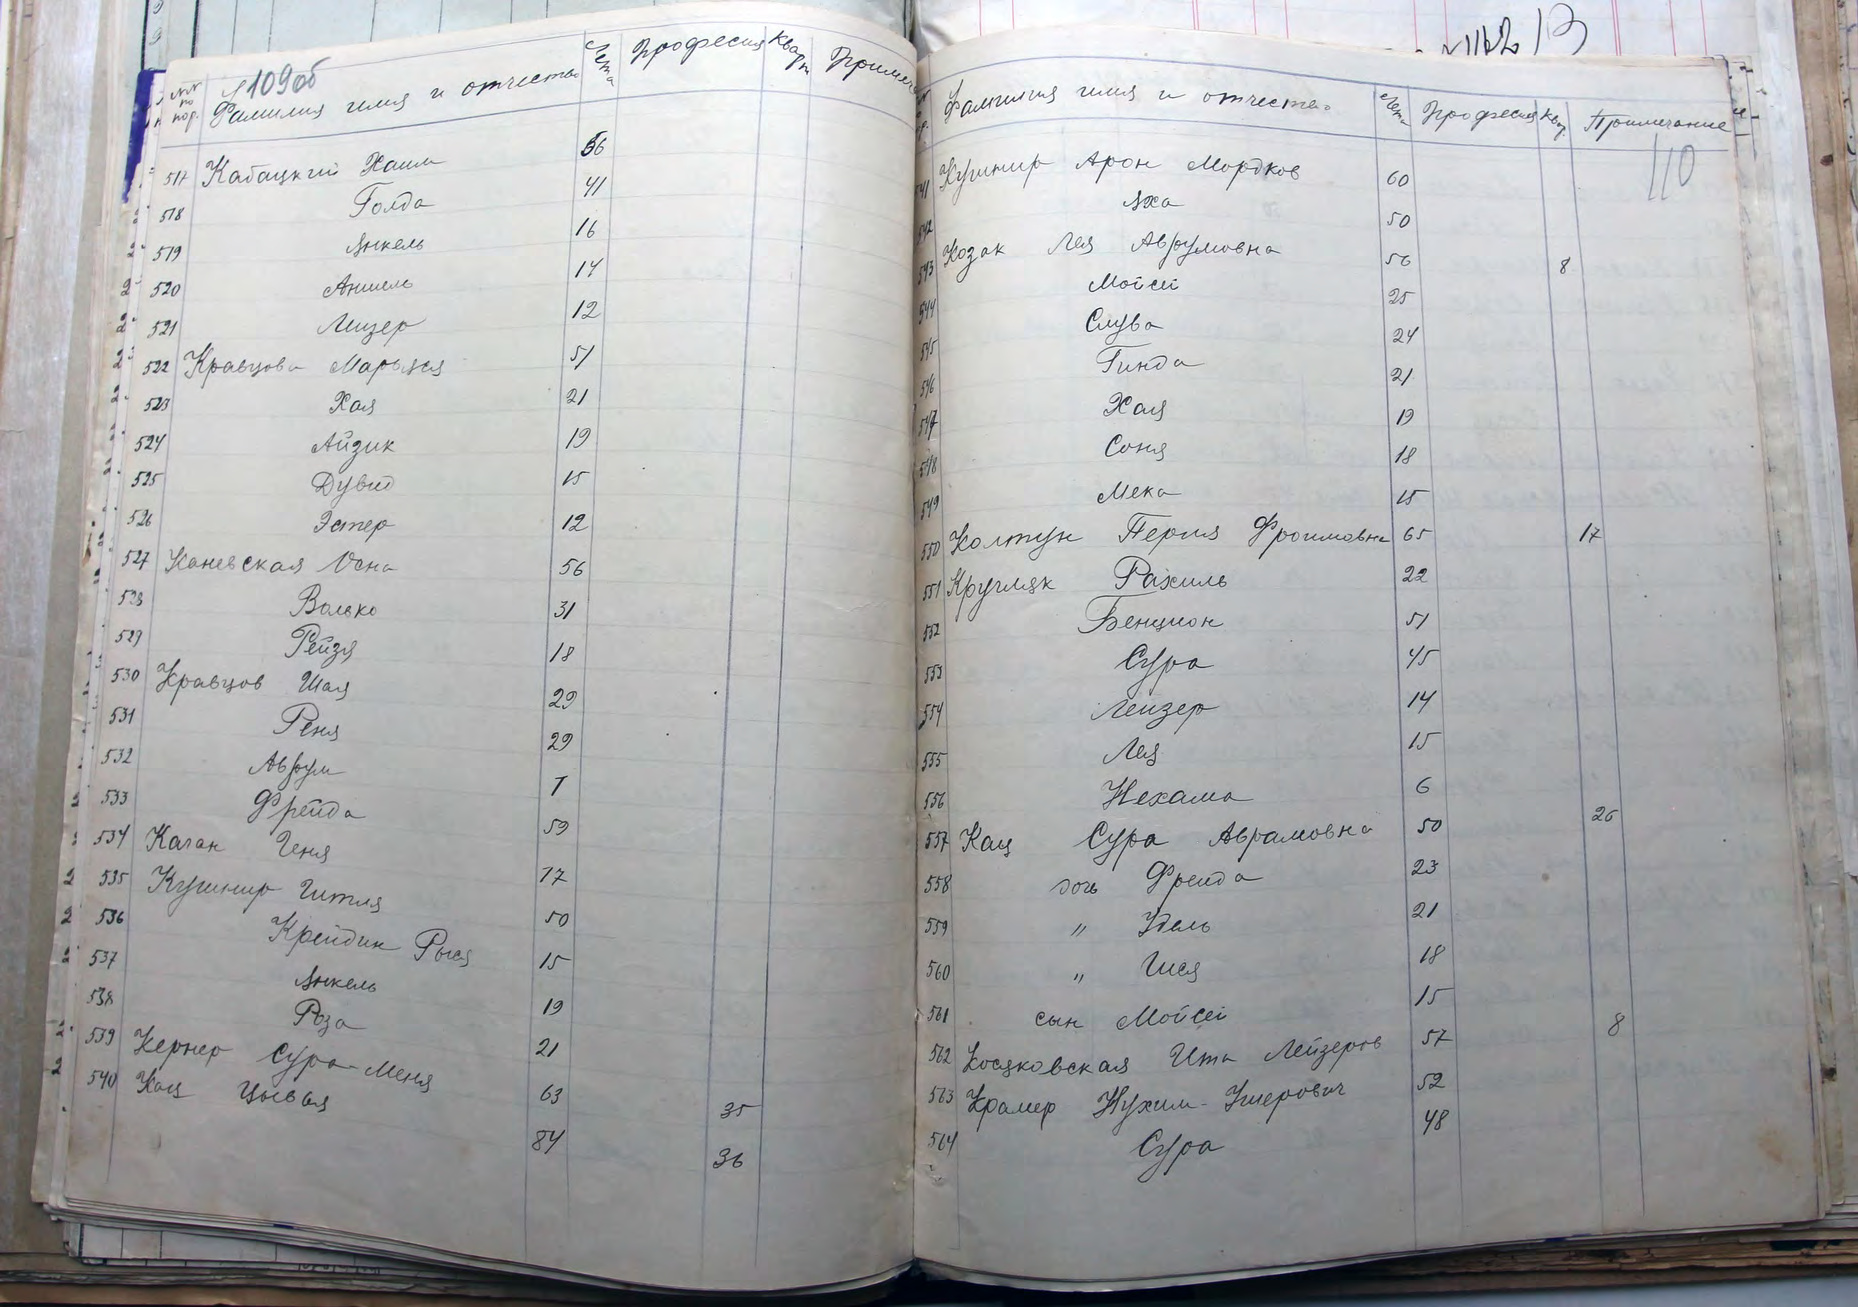 109об
№№ по пор. Фамилия имя и отчество Лета Профессия Кварт Примеч
517 Кабацкий Хаим 56
518 Голда 41
519 Янкель 16
520 Аншель 14
521 Лейзер 12
522 Кравцова Марьяся 51
523 Хая 21
524 Айзик 19
525 Дувид 15
526 Эстер 12
527 Каневская Осна 56
528 Волько 31
529 Рейзя 18
530 Кравцов Шая 29
531 Реня 29
532 Аврум 7
533 Фрейда 59
534 Каган Геня 77
535 Кушнир Гитля 50
536 Крейдик Рыся 15
537 Янкель 19
538 Роза 21
539 Кернер Сура-Меня 63 35
540 Кац Цывья 84 36
Фамилия имя и отчество Лета Профессия Квар. Примечание
110
541 Кушнир Арон Мордков 60
542 Яха 50
543 Козак Лея Аврумовна 56 8
544 Мойсей 25
545 Слува 24
546 Гинда 21
547 Хая 19
548 Соня 18
549 Мека 15
550 Колтун Перля Фроимовна 65 17
551 Кругляк Рахиль 22
552 Бенцион 51
553 Сура 45
554 Лейзер 14
555 Лея 15
556 Нехама 6
557 Кац Сура Аврамовна 50 26
558 дочь Фрейда 23
559 " Удель 21
560 " Шея 18
561 сын Мойсей 15
562 Косяковская Ита Лейзеров 57 8
563 Крамер Нухим-Ушерович 52
564 Сура 48